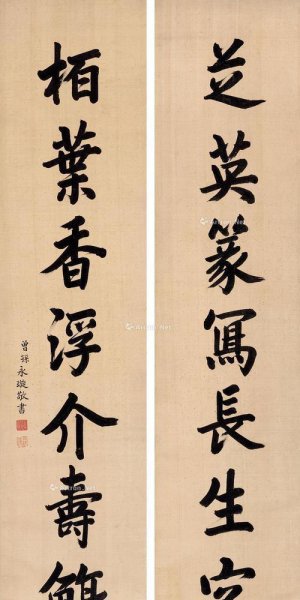 芝英篆寫長生字
栢葉香浮介壽觴
曾孫永瑆敬書